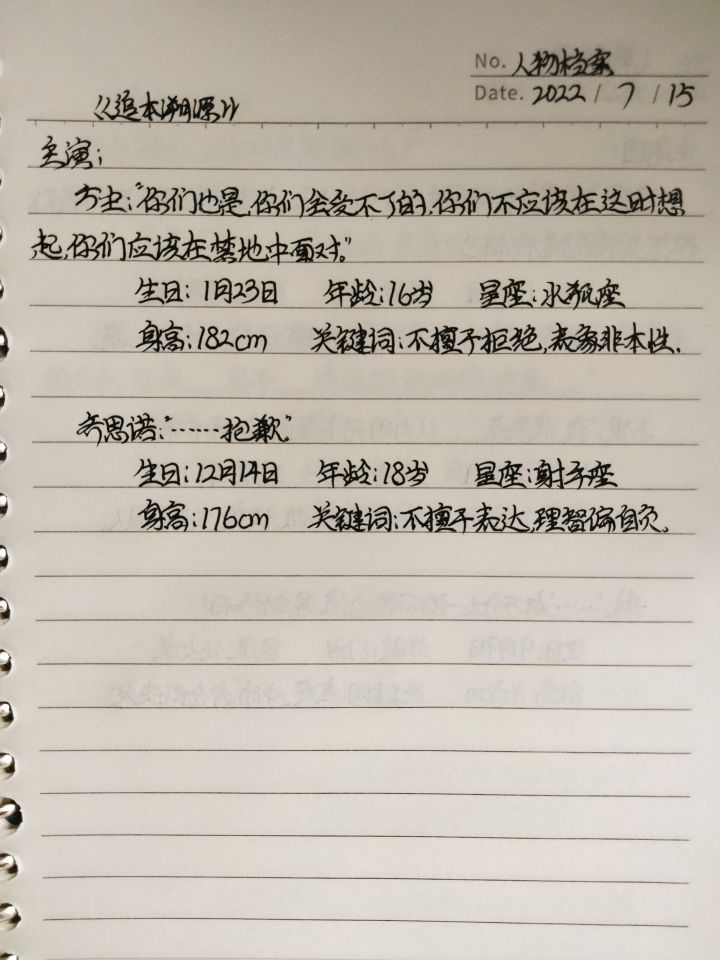 No. 人物档案
Date. 2022 / 7 / 15
《追本溯源》
主演:
方主:"你们也是,你们会受不了的,你们不应该在这时想
起,你们应该在禁地中面对。"
生日:1月23日 年龄:16岁 星座:水瓶座
身高:182cm 关键词:不擅于拒绝,表象非本性.
奇思诺:"……抱歉."
生日:12月14日 年龄:18岁 星座:射手座
身高:176cm 关键词:不擅于表达,理智偏自负.